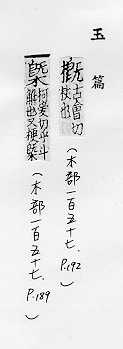 玉篇
古會切
杖也
（木部一百五十七. P.192）
槩
柯愛切平斗
斛也又梗槩
（木部一百五十七. P.189）